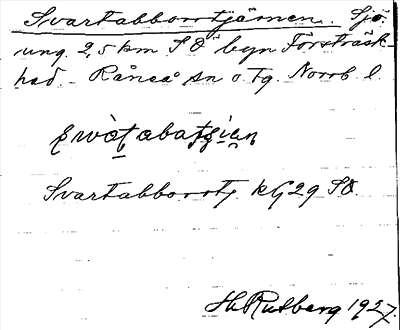 Svartabborrtjärnen. Sjö.
ung. 2,5 km SÖ byn Förträsk-
hed - Råneå sn o tg. Norrb l.
Svartabborrtj. kG29 SO.
Hl Rutberg 1927.